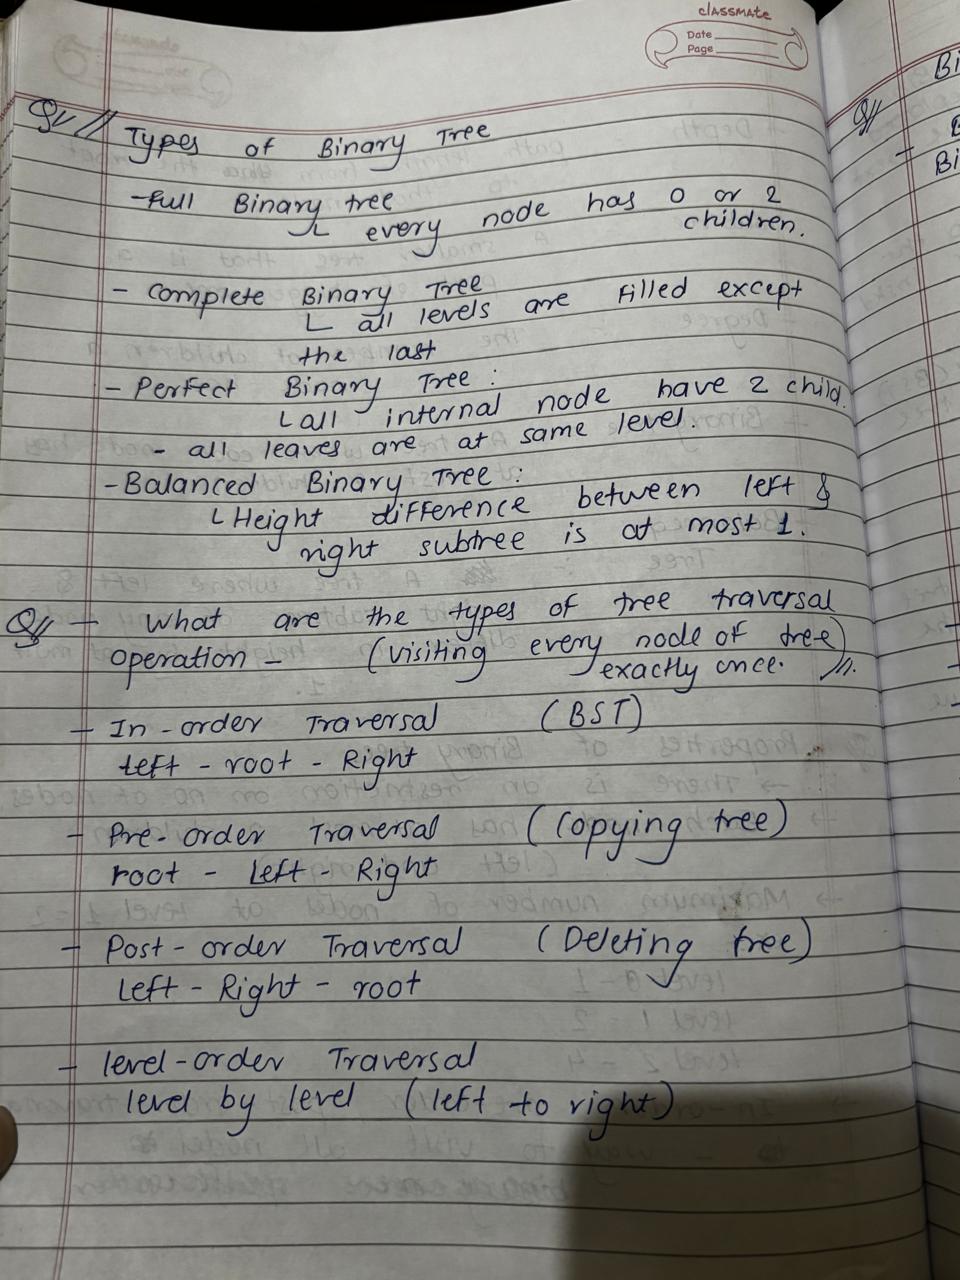 classmate
Date
Page
Q// Types of Binary Tree
- Full Binary tree
every node has 0 or 2
children.
- Complete Binary Tree
all levels are filled except
the last
- Perfect Binary Tree :
all internal node have 2 child.
- all leaves are at same level.
- Balanced Binary Tree :
Height difference between left &
right subtree is at most 1.
Q// - What are the types of tree traversal
operation - (visiting every node of tree)
exactly once.
- In-order Traversal (BST)
left - root - Right
- Pre-order Traversal (Copying tree)
root - Left - Right
- Post-order Traversal (Deleting tree)
Left - Right - root
- level-order Traversal
level by level (left to right)
Q//
Bi
B
Bi